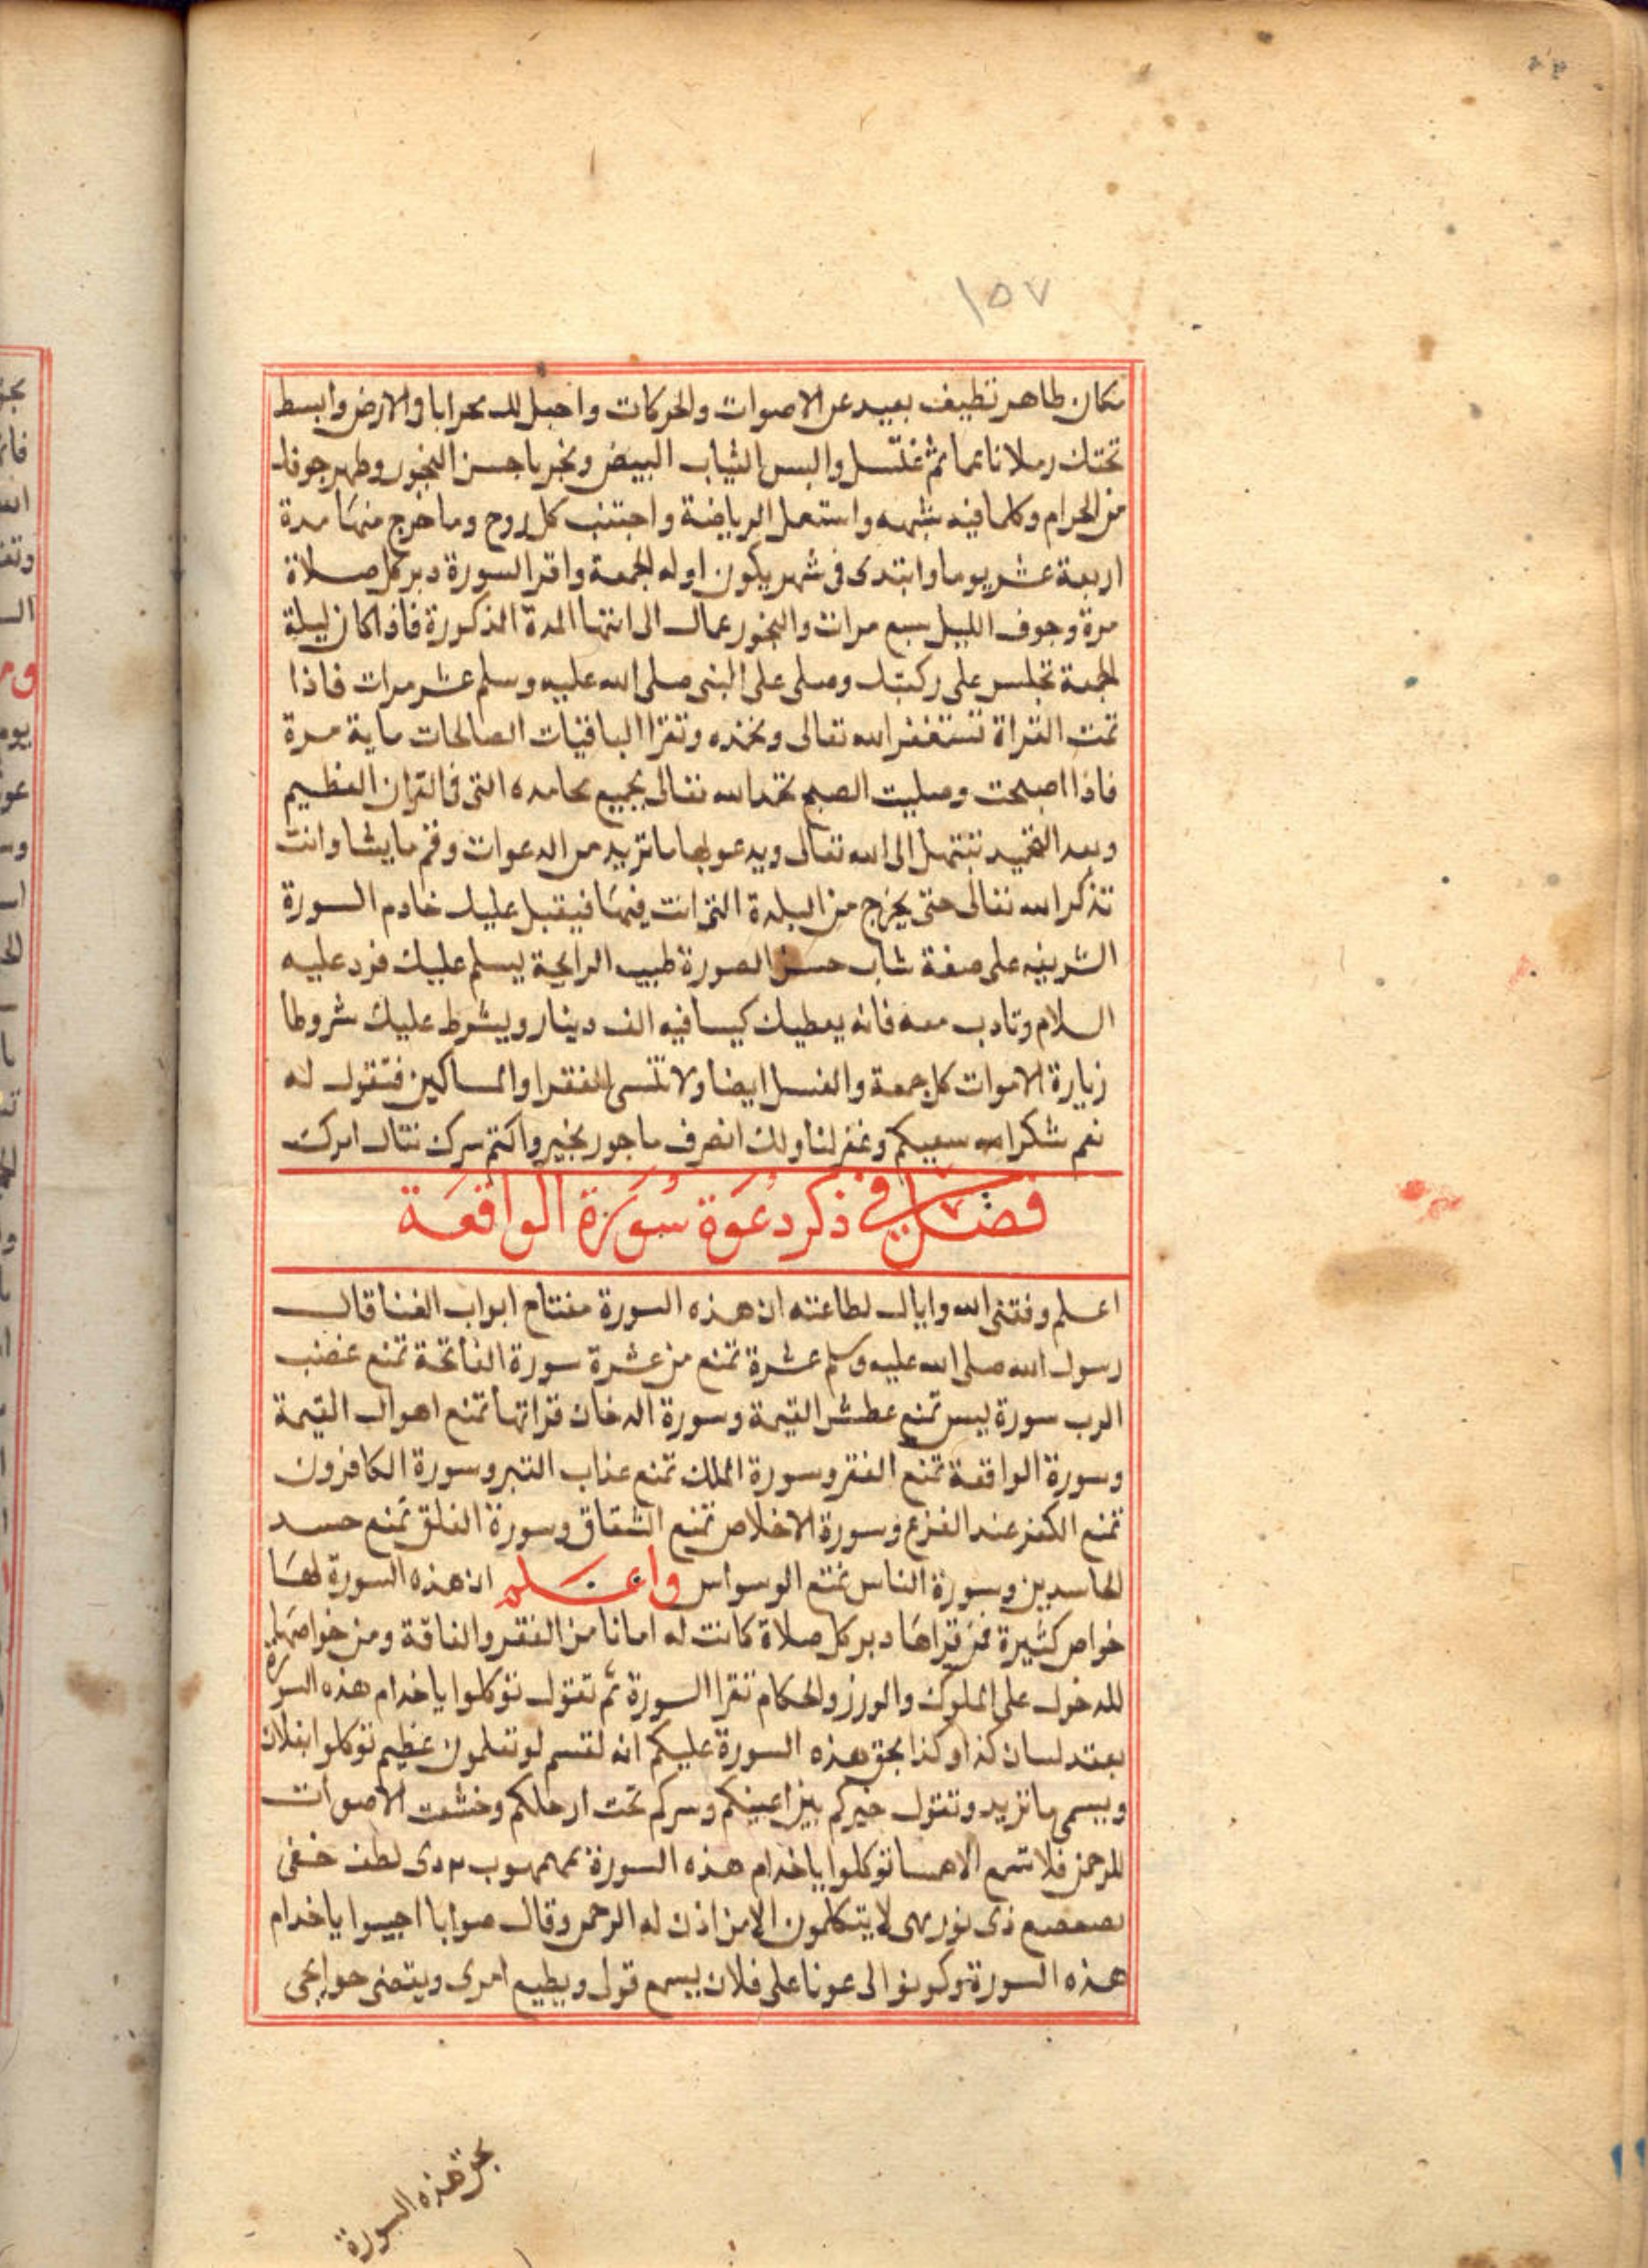 ١٥٧
مكان طاهر نظيف بعيد عن الاصوات والحركات واجعل لك محرابا في الارض وابسط
تحتك رملا ناعما ثم تغتسل والبس الثياب البيض وتبخر باحسن البخور وطهر جوفك
من الحرام وكلما فيه شبهه واستعمل الرياضة واجتنب كل روح وما خرج منها مدة
اربعة عشر يوما وابتدى في شهر يكون اوله الجمعة واقرا السورة دبر كل صلاة
مرة وجوف الليل سبع مرات والبخور عمال الى انتها المدة المذكورة فاذا كان ليلة
الجمعة تجلس على ركبتك وصلى على النبى صلى الله عليه وسلم عشر مرات فاذا
تمت القراة تستغفر الله تعالى وتحمده وتقرا الباقيات الصالحات ماية مرة
فاذا اصبحت وصليت الصبح تحمد الله تعالى بجميع محامده التى في القران العظيم
وبعد التحميد تبتهل الى الله تعالى ويدعو بها ما تريد من الدعوات وقم ما يشا وانت
تذكر الله تعالى حتى يخرج من البلدة التى انت فيها فيقبل عليك خادم السورة
الشريفه على صفة شاب حسن الصورة طيب الرايحة يسلم عليك فرد عليه
السلام وتادب معه فانه يعطيك كيسا فيه الف دينار ويشرط عليك شروطا
زيارة الاموات كل جمعة والغسل ايضا ولا تنسى الفقرا والمساكين فتقول له
نعم شكر الله سعيكم وغفر لنا ولك انصرف ماجور بخير واكتم سرك تنال امرك
فصل في ذكر دعوة سورة الواقعة
اعلم وفقنى الله واياك لطاعته ان هذه السورة مفتاح ابواب الغنا قال
رسول الله صلى الله عليه وسلم عشرة تمنع من عشرة سورة الفاتحة تمنع غضب
الرب سورة يس تمنع عطش القيمة وسورة الدخان قراتها تمنع اهوال القيمة
وسورة الواقعة تمنع الفقر وسورة الملك تمنع عذاب القبر وسورة الكافرون
تمنع الكفر عند الفزع وسورة الاخلاص تمنع الشقاق وسورة الفلق تمنع حسد
الحاسدين وسورة الناس تمنع الوسواس واعلم ان هذه السورة لها
خواص كثيرة فمن قراها دبر كل صلاة كانت له امانا من الفقر والفاقة ومن خواصها
للدخول على الملوك والوزر والحكام تقرا السورة ثم تقول توكلوا يا خدام هذه السورة
بعقد لسان كذا وكذا بحق هذه السورة عليكم انه لقسم لو تعلمون عظيم توكلوا بفلان
ويسمى ما تريد وتقول خيركم بين اعينكم وسركم تحت ارجلكم وخشعت الاصوات
للرحمن فلا تسمع الا همسا توكلوا يا خدام هذه السورة لطف خفى
ذى نور بهى لا يتكلمون الا من اذن له الرحمن وقال صوابا اجيبوا يا خدام
هذه السورة وكونوا لى عونا على فلان يسمع قول ويطيع امرى ويقضى حوايجى
بحق هذه السورة